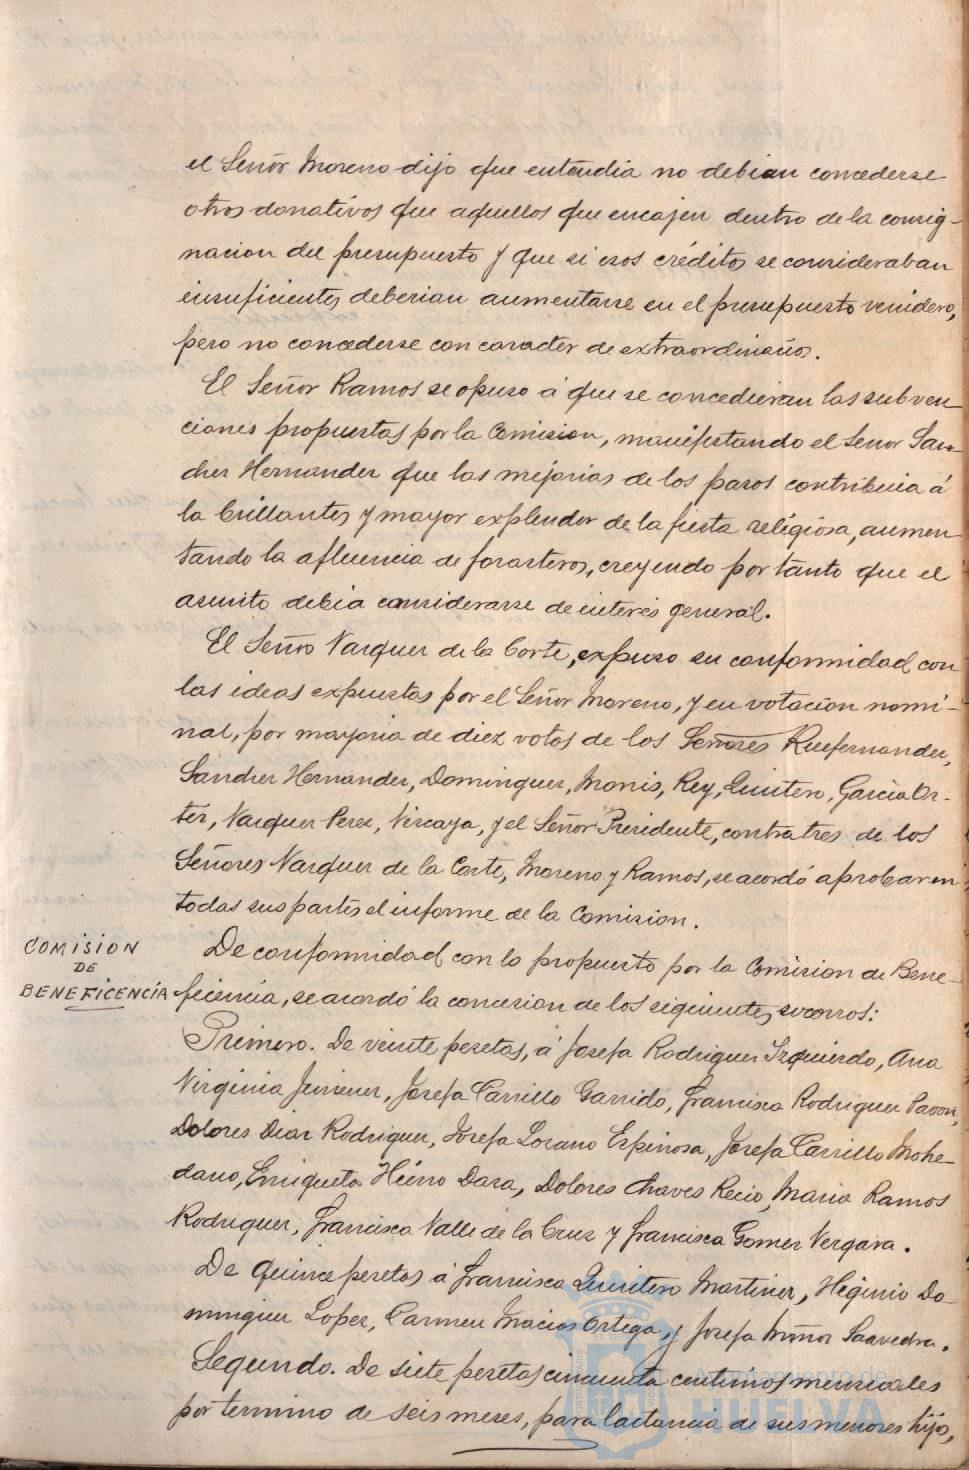 el Señor Moreno dijo que entendia no debian concederse
otros donativos que aquellos que encajen dentro de la consig-
nacion del presupuesto y que si esos créditos se consideraban
insuficientes, deberian aumentarse en el presupuesto venidero,
pero no concederse con caracter de extraordinarios.
El Señor Ramos se opuso á que se concedieran las subven
ciones propuestas por la Comision, manifestando el Señor San-
chez Hernandez que las mejorias de los pasos contribuia á
la brillantes y mayor explendor de la fiesta religiosa, aumen
tando la afluencia de forasteros, creyendo por tanto que el
asunto debia considerarse de interés general.
El Señor Vazquez de la Corte, expuso su conformidad con
las ideas expuestas por el Señor Moreno, y en votacion nomi-
nal, por mayoria de diez votos de los Señores Ruifernandez,
Sanchez Hernandez, Dominguez, Monis, Rey, Quintero, Garcia Or-
tiz, Vazquez Perez, Vizcaya, y el Señor Presidente, contra tres de los
Señores Vazquez de la Corte, Moreno y Ramos, se acordó aprobar en
todas sus partes el informe de la Comision.
COMISION
DE
BENEFICENCIA
De conformidad con lo propuesto por la Comision de Bene-
ficencia, se acordó la concesion de los siguientes socorros:
Primero. De veinte pesetas, á Josefa Rodriguez Izquierdo, Ana
Virginia Jimenez, Josefa Carrillo Garrido, Francisca Rodriguez Pavon,
Dolores Diaz Rodriguez, Josefa Lozano Espinosa, Josefa Carrillo Mohe-
dano, Enriqueta Hierro Daza, Dolores Chaves Recio, Maria Ramos
Rodriguez, Francisca Valle de la Cruz y Francisca Gomez Vergara.
De quince pesetas á Francisca Quintero Martinez, Higinio Do-
minguez Lopez, Carmen Macias Ortega, y Josefa Muñoz Saavedra.
Segundo. De siete pesetas cincuenta centimos mensuales
por termino de seis meses, para lactancia de sus menores hijos,
Ayuntamiento de
HUELVA